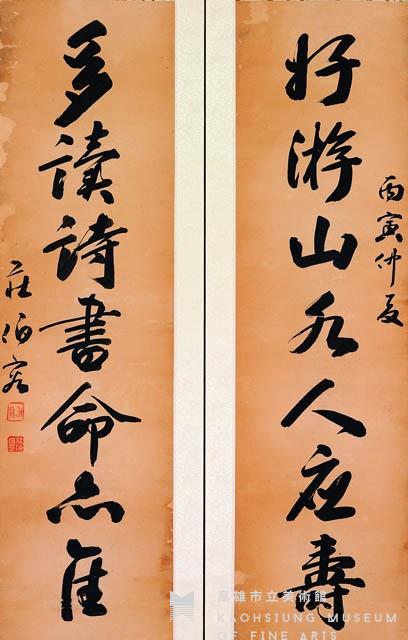 丙寅仲夏
好游山水人應壽
多讀詩書命亦佳
莊伯容
高雄市立美術館
KAOHSIUNG MUSEUM
OF FINE ARTS